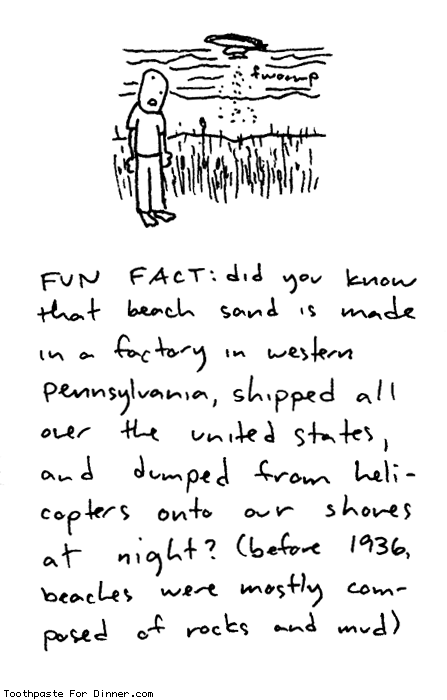 fwoomp
FUN FACT: did you know
that beach sand is made
in a factory in western
pennsylvania, shipped all
over the united states,
and dumped from heli-
copters onto our shores
at night? (before 1936,
beaches were mostly com-
posed of rocks and mud)
Toothpaste For Dinner.com